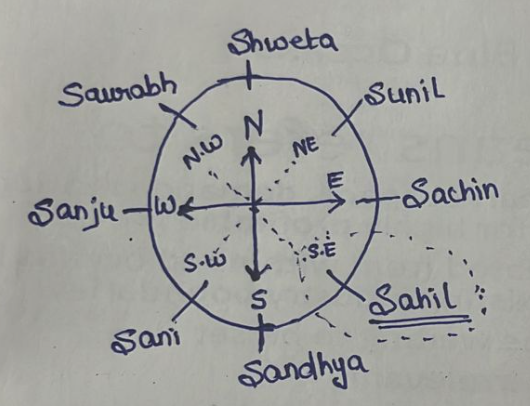 Shweta
Saurabh
Sunil
N
N.W
NE
Sanju
W
E
Sachin
S.W
S.E
S
Sahil
Sani
Sandhya